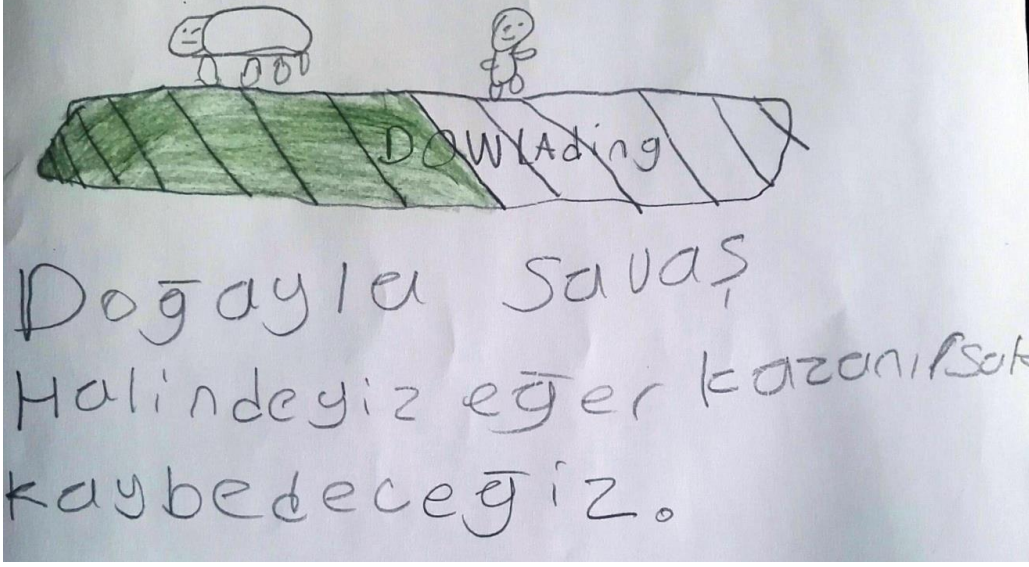 DOWLAding
Doğayla savaş
Halindeyiz eğer kazanırsak
kaybedeceğiz.